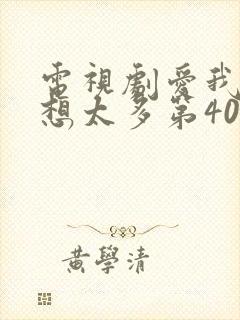 電視劇愛我
想太多第40
黃學清